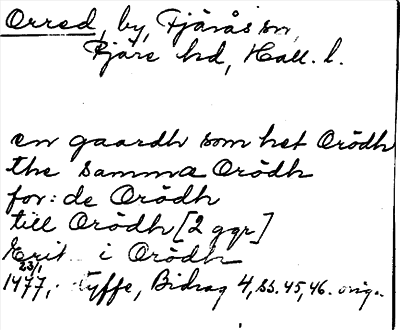 Orred, by, Fjärås sn,
Fjäre hd, Hall. l.
en gaardh som het Orödh
the samma Orödh
for: de Orödh
till Orödh [2 ggr]
Erik i Orödh
23/1
1477, Styffe, Bidrag 4, ss. 45, 46. orig.